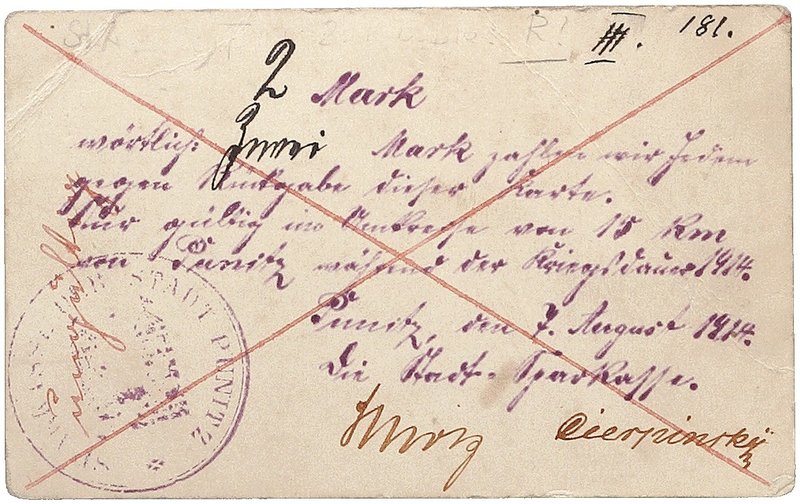 III. 181.
2 Mark
wörtlich: Zwei Mark zahlen wir Jedem
gegen Rückgabe dieser Karte.
Nur gültig im Umkreise von 15 km
von Punitz während der Kriegsdauer 1914.
Punitz, den 7. August 1914.
Die Stadt-Sparkasse.
Cierpinski
STADT PUNITZ